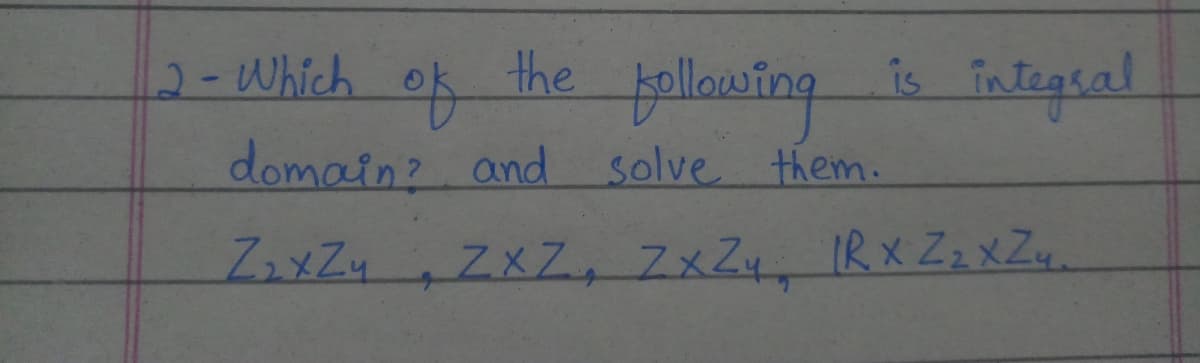 2 - Which of the following is integral
domain? and solve them.
Z₂xZ₄, ZxZ, ZxZ₄, IR x Z₂xZ₄.